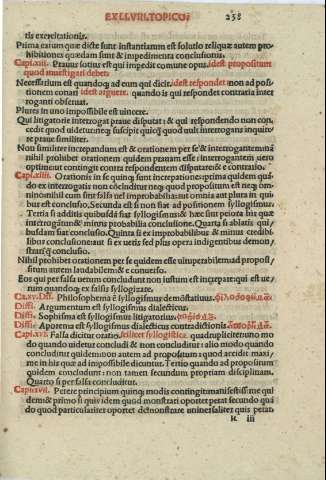 EX LI.VIII.TOPICOꝶ 258
tis exercitationis.
Prima earum quæ dictę sunt instantiarum est solutio reliquæ autem pro-
hibitiones quædam sunt & impedimenta conclusionū.
Capi.xii. Prauus sotius est qui impedit comune opus. idest propositum
quod inuestigari debet.
Necessarium est quandoq; ad eum qui dicit. idest respondet non ad posi-
tionem conari idest arguere. quando is qui respondet contraria inter
roganti obseruat.
Plures in uno impossibile est uincere.
Qui litigatorie interrogat praue disputat: & qui respondendo non con-
cedit quod uidetur: neq; suscipit quicq̃ quod uult interrogans inquire
re praue similiter.
Non similiter increpandum est & orationem per se & interrogantem: nā
nihil prohibet orationem quidem prauam esse: interrogantem uero
optime ut contingit contra respondentem disputare: & e contrario.
Capi.xiii. Orationis in se quinq; sunt increpationes: prima quidem quā
do ex interrogatis non cōcluditur neq; quod propositum est neq; om-
nino nihil cum sint falsa uel improbabilia: aut omnia aut plura in qui-
bus est conclusio. Secunda est si non fiat ad positionem syllogismus.
Tertia si additis quibusdā fiat syllogismus: & hæc sint peiora his quæ
interrogātur: & minus probabilia conclusione. Quarta si ablatis qui-
busdam fiat conclusio. Quinta si ex improbabilibus & minus credibi-
libus conclusione: aut si ex ueris sed plus opera indigentibus demon,
strarīq; conclusio.
Nihil prohibet orationem per se quidem esse uituperabilem: ad propo/
situm autem laudabilem: & e conuerso.
Eos qui per falsa uerum concludunt non iustum est increpare: qui est ue-
rum quandoq; ex falsis syllogizare.
Ca.xv. Dffi. Philosophema ē syllogismus demōstatiuus.
Diffi. Argumentum est syllogismus dialecticus.
Diffi. Sophisma est syllogismus litigatorius.
Diffi. Aporema est syllogismus dialecticus contradictionis.
Capi.xvi. Falsa dicitur oratio. scilicet syllogistica. quadrupliciter: uno mo
do quando uidetur concludi & non concluditur: alio modo quando
concluditur quidem: non autem ad propositum: quod accidit maxi/
me in his quæ ad impossibile dicuntur. Tertio quando ad propositum
quidem concludunt: non tamen secundum propriam disciplinam.
Quarto si per falsa concluditur.
Capi.xvii. Petere principium quinq; modis contingit: manifestissime qui
dem & primo si quis idem quod monstrari oportet petat: secundo quā
do quod particulariter oportet demonstrare uniuersaliter quis petat.
iii